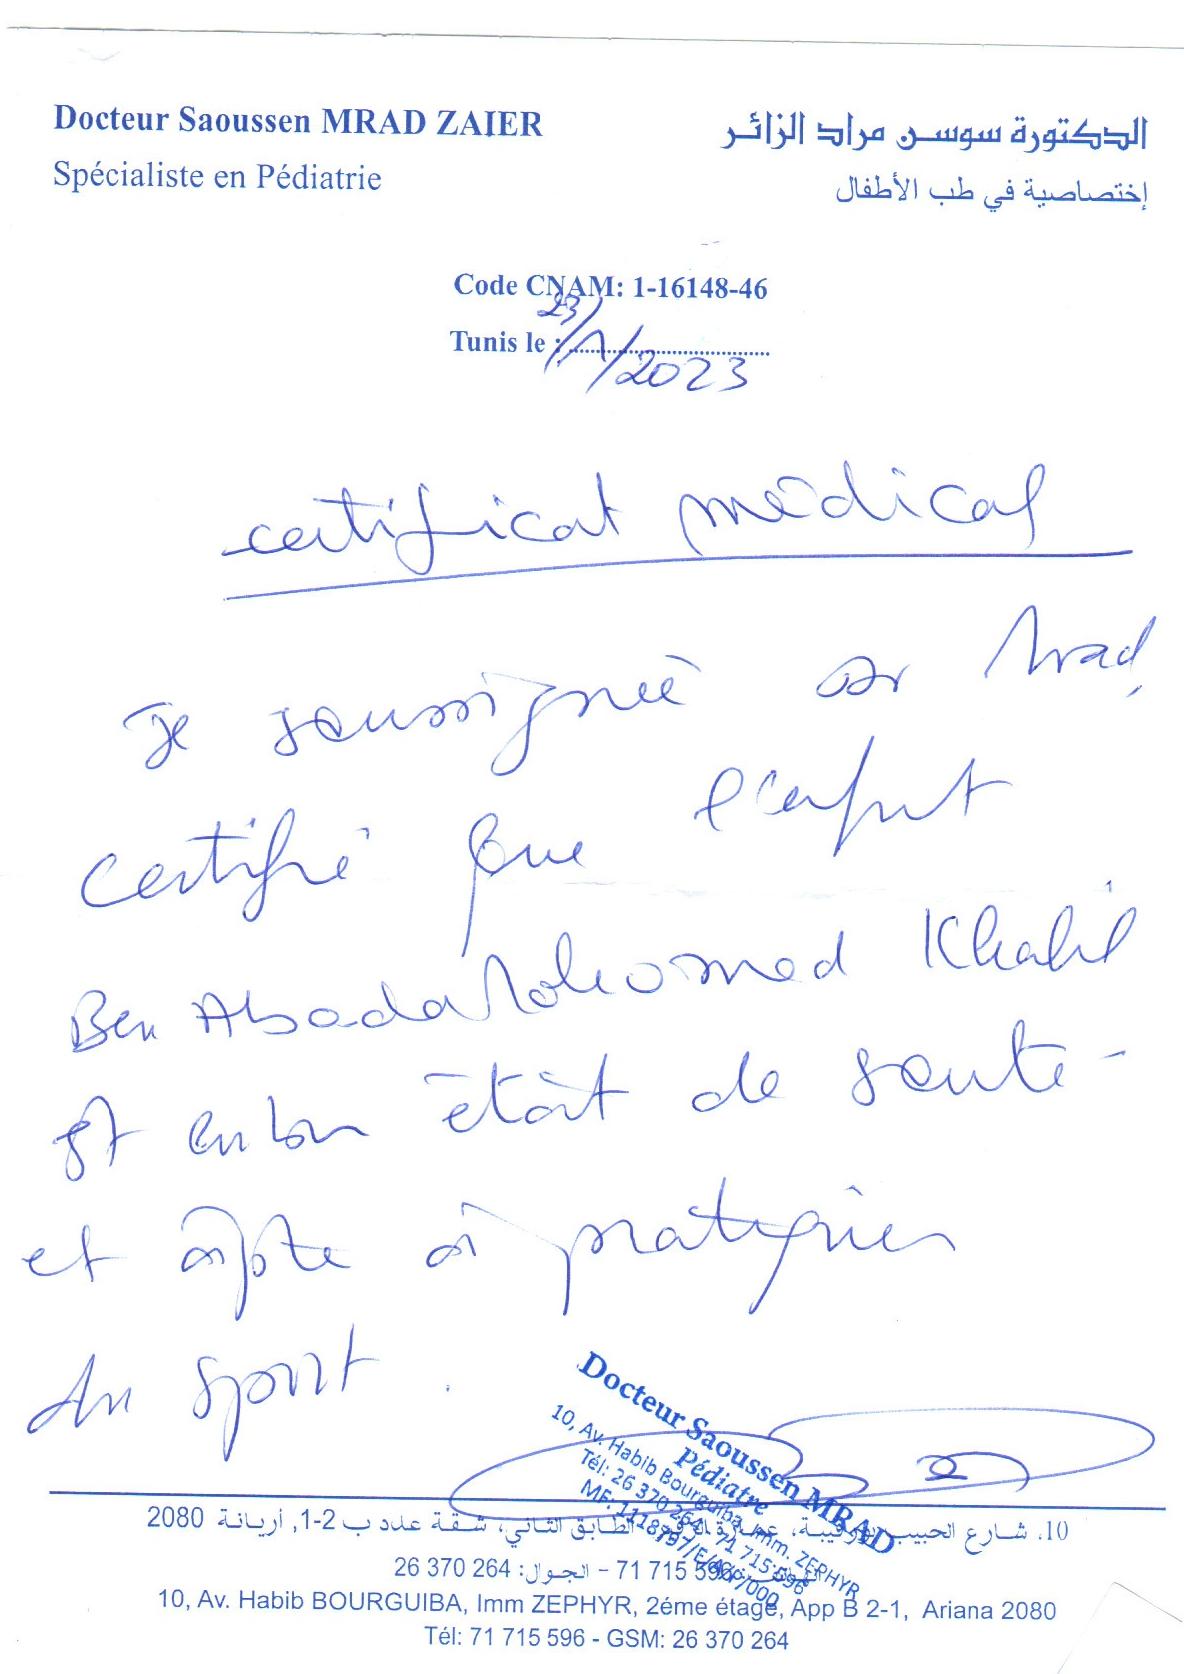 Docteur Saoussen MRAD ZAIER
Spécialiste en Pédiatrie
الدكتورة سوسن مراد الزائر
إختصاصية في طب الأطفال
Code CNAM: 1-16148-46
Tunis le : 23/1/2023
certificat médical
Je soussignée Dr Mrad,
certifié que l'enfant
Ben Abada Mohomed Khalil
est en bon étàt de santé -
et àpte à pratiquer
du sport .
Docteur Saoussen MRAD
Pédiatre
10, Av. Habib Bourguiba, Imm. ZEPHYR
Tél: 26 370 264 - 71 715 596
10، شارع الحبيب بورقيبة، الطابق الثاني، شقة عدد ب 2-1, أريانة 2080
71 715 596 – الجوال: 26 370 264
10, Av. Habib BOURGUIBA, Imm ZEPHYR, 2éme étage, App B 2-1, Ariana 2080
Tél: 71 715 596 - GSM: 26 370 264